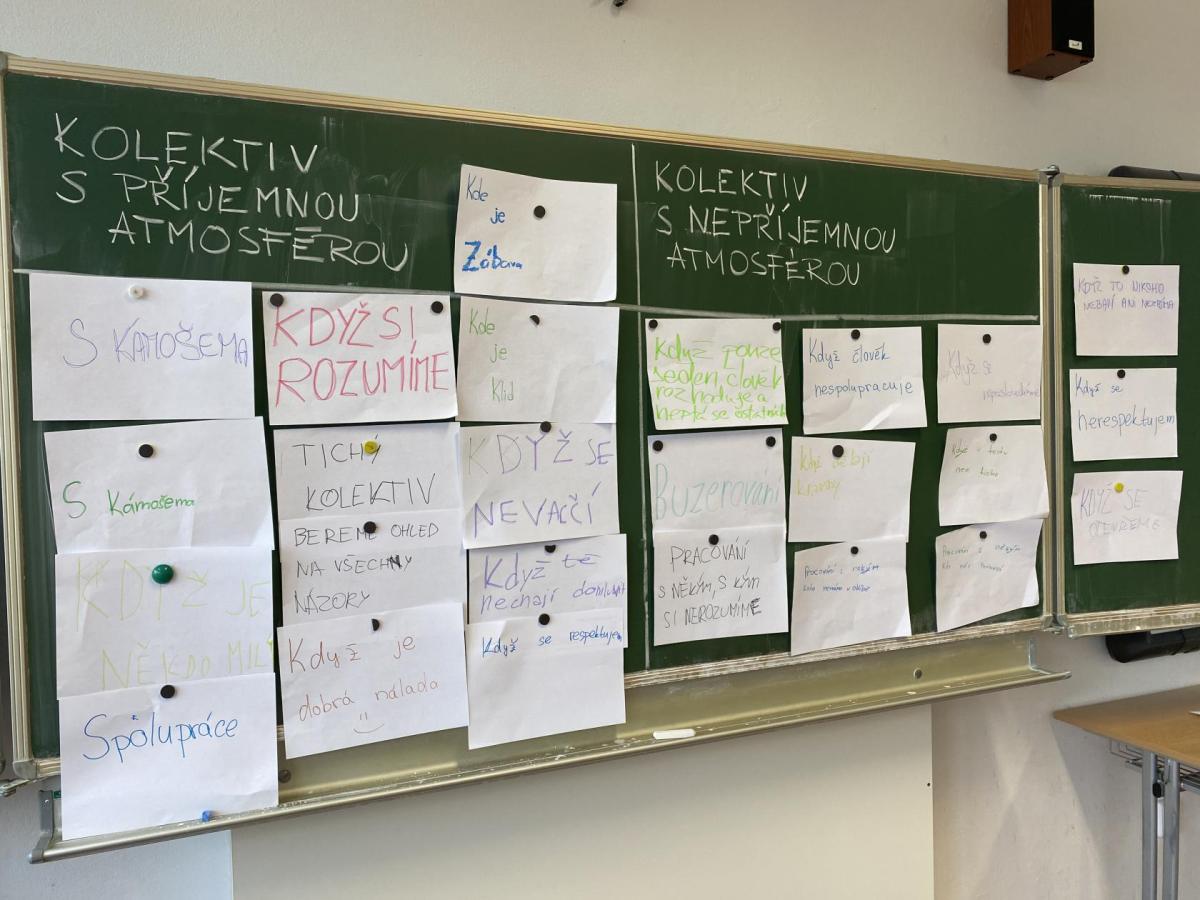 KOLEKTIV
S PŘÍJEMNOU
ATMOSFÉROU
Kde
je
Zábava
S KAMOŠEMA
KDYŽ SI
ROZUMÍME
Kde
je
Klid
S Kámošema
TICHÝ
KOLEKTIV
KDYŽ SE
NEVAČČÍ
KDYŽ JE
NĚKDO MILÍ
BEREME OHLED
NA VŠECHNY
NÁZORY
Když tě
nechají domluvit
Spolupráce
Když je
dobrá nálada
Když se respektujem
KOLEKTIV
S NEPŘÍJEMNOU
ATMOSFÉROU
Když pouze
jeden člověk
rozhoduje a
neptá se ostatních
Když člověk
nespolupracuje
Když se
Buzerování
Když dělají
kraviny
Když v
PRACOVÁNÍ
S NĚKÝM, S KÝM
SI NEROZUMÍME
Pracování s
Pracování s
KDYŽ TO NIKOHO
NEBAVÍ ANI
Když se
nerespektujem
KDYŽ SE